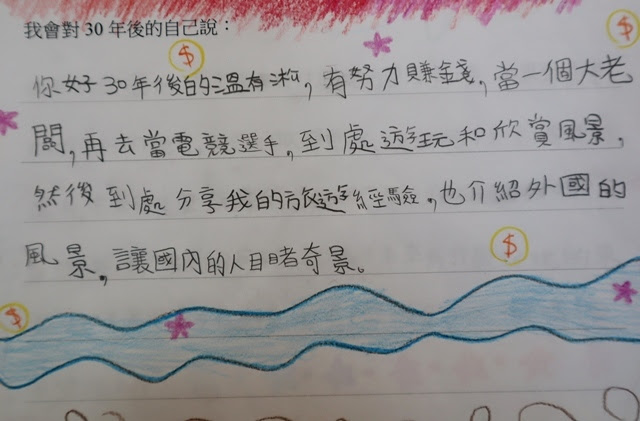 我會對 30 年後的自己說：
$
$
你好30年後的溫有淞，有努力賺錢，當一個大老
闆，再去當電競選手，到處遊玩和欣賞風景，
然後到處分享我的旅遊經驗，也介紹外國的
風景，讓國內的人目睹奇景。
$
$